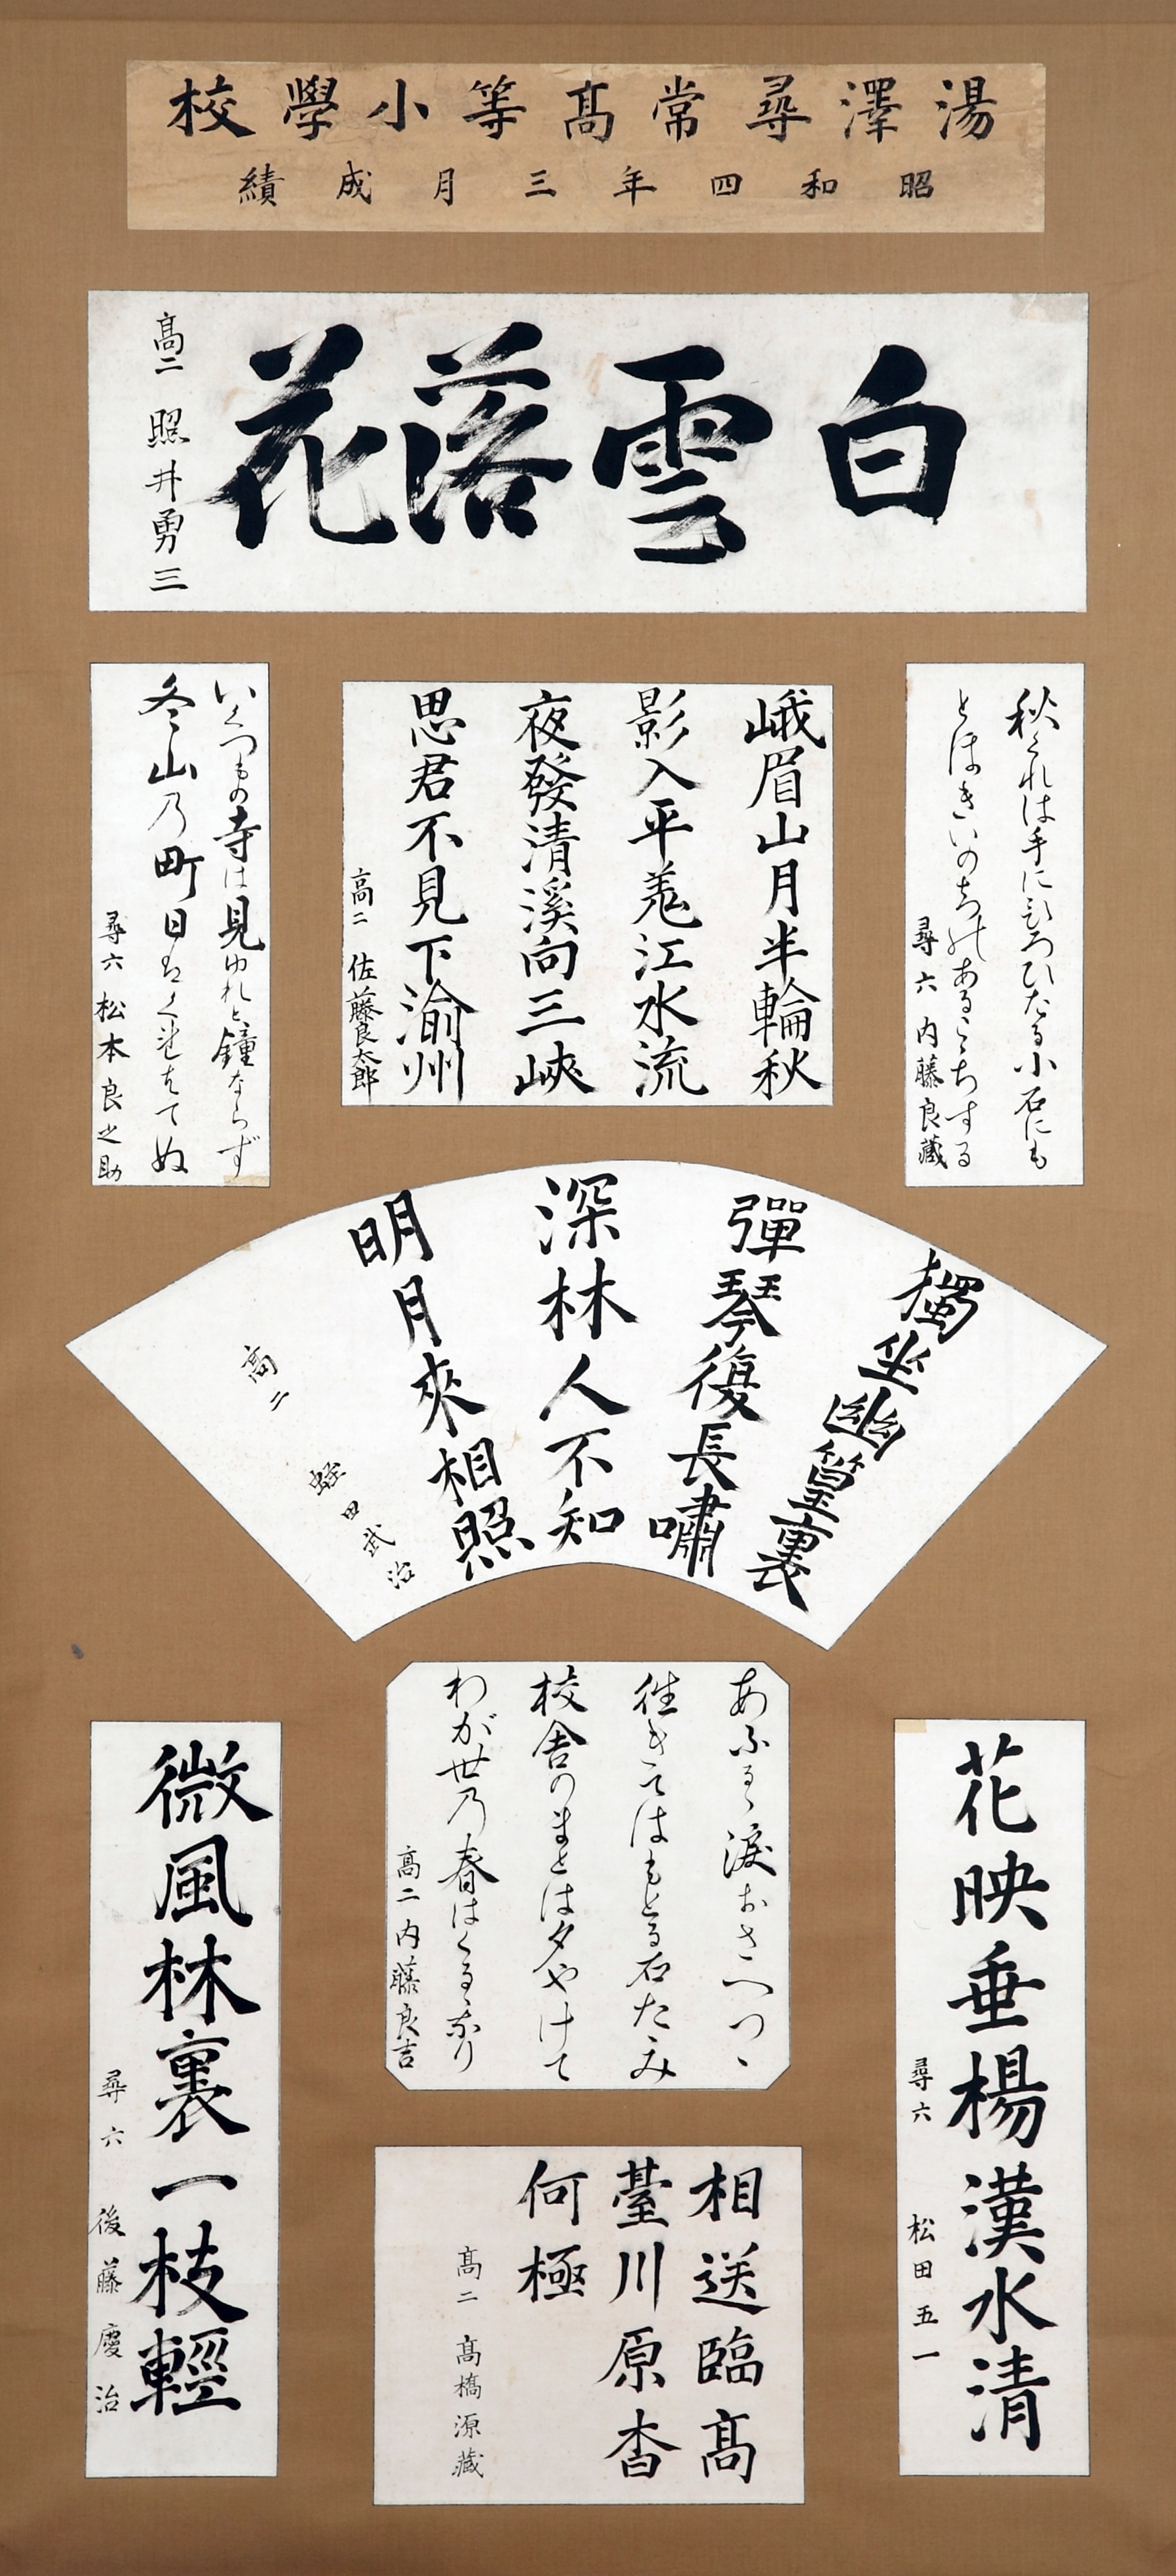 湯澤尋常髙等小學校
昭和四年三月成績
白雲落花
髙二 照井勇三
秋くれは手にひろひたる小石にも
とほきいのちのあるこゝちする
尋六 内藤良藏
峨眉山月半輪秋
影入平羗江水流
夜發清溪向三峽
思君不見下渝州
高二 佐藤良太郎
いくつもの寺は見ゆれと鐘ならず
冬山乃町日はくれはてぬ
尋六 松本良之助
獨坐幽篁裏
彈琴復長嘯
深林人不知
明月來相照
高二 蛭田武治
あふるゝ涙おさへつゝ
往きてはもとる石たゝみ
校舍のまとは夕やけて
わが世乃春はくるゝなり
高二 内藤良吉
花映垂楊漢水清
尋六 松田五一
相送臨髙
臺川原杳
何極
髙二 髙橋源藏
微風林裏一枝輕
尋六 後藤慶治